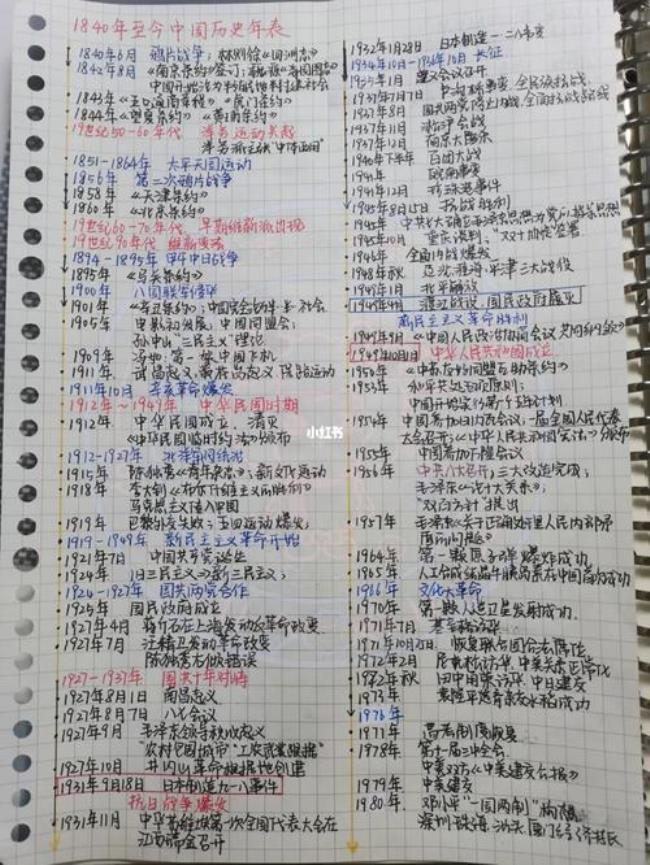 1840年至今中国历史年表
1840年6月 鸦片战争；林则徐《四洲志》
1842年8月 《南京条约》签订；魏源《海国图志》
中国开始沦为半殖民地半封建社会
1843年《五口通商章程》《虎门条约》
1844年《望厦条约》《黄埔条约》
19世纪50-60年代 洋务运动兴起
洋务派主张"中体西用"
1851-1864年 太平天国运动
1856年 第二次鸦片战争
1858年 《天津条约》
1860年 《北京条约》
19世纪60-70年代 早期维新派出现
19世纪90年代 维新
1894-1895年 甲午中日战争
1895年 《马关条约》
1900年 八国联军侵华
1901年 《辛丑条约》；中国完全 社会
1905年 电影初发展；中国同盟会；
孙中山"三民主义"理论
1909年 冯如：第一架中国飞机
1911年 武昌起义；黄花岗起义；保路运动
1911年10月 辛亥革命爆发
1912年～1949年 中华民国时期
1912年 中华民国成立，清灭
《中华民国临时约法》颁布
1912-1927年 北洋军阀统治
1915年 陈独秀《青年杂志》；新文化运动
1918年 李大钊《布尔什维主义的胜利》
马克思主义传入中国
1919年 巴黎外交失败；五四运动爆发；
1919-1949年 新民主主义革命开始
1921年7月 中国共产党诞生
1924年 旧三民主义→新三民主义；
1924-1927年 国共两党合作
1925年 国民政府成立
1927年4月 蒋介石在上海发动反革命政变
1927年7月 汪精卫发动革命政变
陈独秀右倾错误
1927-1937年 国共十年对峙
1927年8月1日 南昌起义
1927年8月7日 八七会议
1927年9月 毛泽东领导秋收起义
"农村包围城市""工农武装割据"
1927年10月 井冈山革命根据地创建
1931年9月18日 日本制造九一八事件
抗日战争爆发
1931年11月 中华苏维埃第一次全国代表大会在
江西瑞金召开
1932年1月28日 日本制造一·二八事变
1934年10月-1936年10月 长征
1935年1月 遵义会议召开
1937年7月7日 卢沟桥事变，全民族抗战
1937年8月 国共两党 内战，全面抗战
1937年11月 淞沪会战
1937年12月 南京大屠杀
1940年下半年 百团大战
1941年 皖南事变
1941年12月 珍珠港事件
1945年8月15日 抗战胜利
1945年 中共七大确立毛泽东思想为党的指导思想
1945年10月 重庆谈判，"双十协定"签署
1946年 全面内战爆发
1948年秋 辽沈，淮海，平津三大战役
1949年1月 北平解放
1949年4月 渡江战役，国民政府覆灭
新民主主义革命胜利
1949年9月 《中国人民政治协商会议共同纲领》
1949年10月1日 中华人民共和国成立
1950年 《中苏友好同盟互助条约》
1953年 和平共处五项原则；
中国开始实行第一个五年计划
1954年 中国参加日内瓦会议；一届全国人民代表
大会召开；《中华人民共和国宪法》颁布
1955年 中国参加万隆会议
1956年 中共八大召开；三大改造完成；
毛泽东《论十大关系》；
"双百方针"提出
1957年 毛泽东《关于正确处理人民内部矛
盾的问题》
1964年 第一颗原子弹爆炸成功
1965年 人工合成结晶牛胰岛素在中国首次成功
1966年 文化大革命
1970年 第一颗人造卫星发射成功
1971年7月 基辛格访华
1971年10月25日 恢复联合国合法席位
1972年2月 尼克松访华，中美关系正常化
1972年秋 田中角荣访华，中日建交
1973年 袁隆平选育杂交水稻成功
1976年
1977年 高考制度恢复
1978年 第十一届三中全会
中美双方《中美建交公报》
1979年 中美建交
1980年 邓小平"一国两制"构想
深圳、珠海、汕头、厦门经济特区
小红书